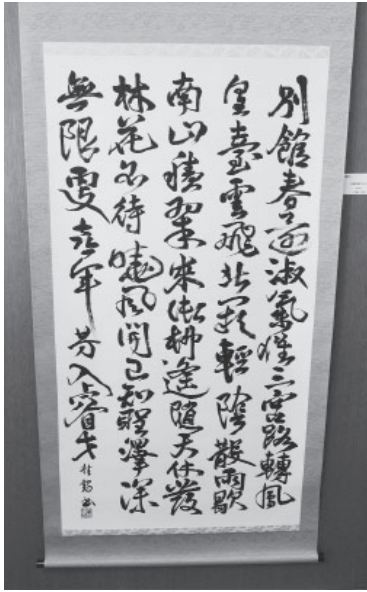 別館春還淑氣催三宮路轉鳳
皇臺雲飛北闕輕陰散雨歇
南山積翠來御柳遙隨天仗發
林花不待曉風開已知聖澤深
無限更喜年芳入睿才